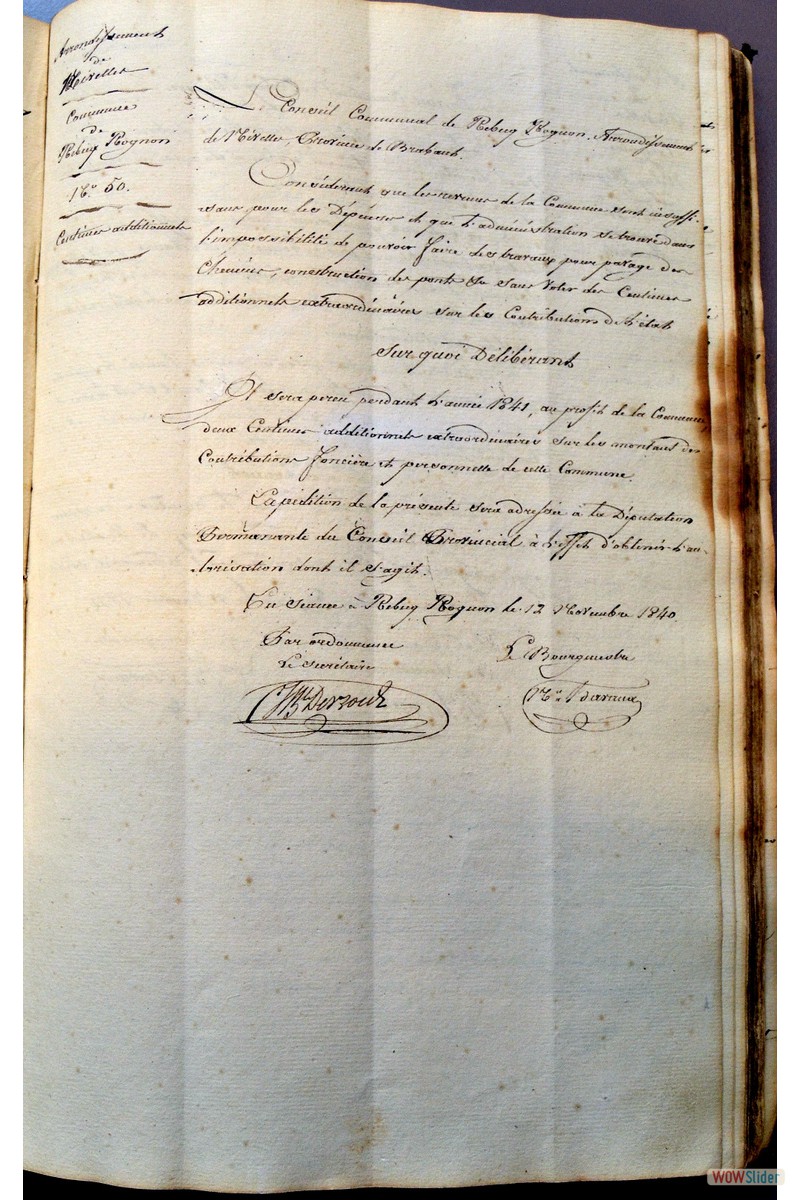 Arrondissement
de
Nivelles
Commune
de
Rebecq Rognon
N.o 50.
Centimes additionnels
Le Conseil Communal de Rebecq Rognon, Arrondissement
de Nivelle, Province de Brabant.
Considérant que les revenus de la Commune sont insuffi-
sans pour les Dépenses et que l'administration se trouve dans
l'impossibilité de pouvoir faire des travaux pour pavage des
Chemins, construction des ponts &a sans voter des Centimes
additionnels extraordinaires sur les Contributions de l'état
Sur quoi Délibérant
Il sera perçu pendant l'année 1841, au profit de la Commune,
deux Centimes additionnels extraordinaires sur les montant des
Contributions foncière et personnelle de cette Commune.
Expédition de la présente sera adressée à la Députation
Permanante du Conseil Provincial à l'effet d'obtenir l'au-
torisation dont il s'agit.
En séance à Rebecq Rognon le 12 Novembre 1840.
Par ordonnance
Le Secrétaire
Le Bourgmestre
WOWSlider